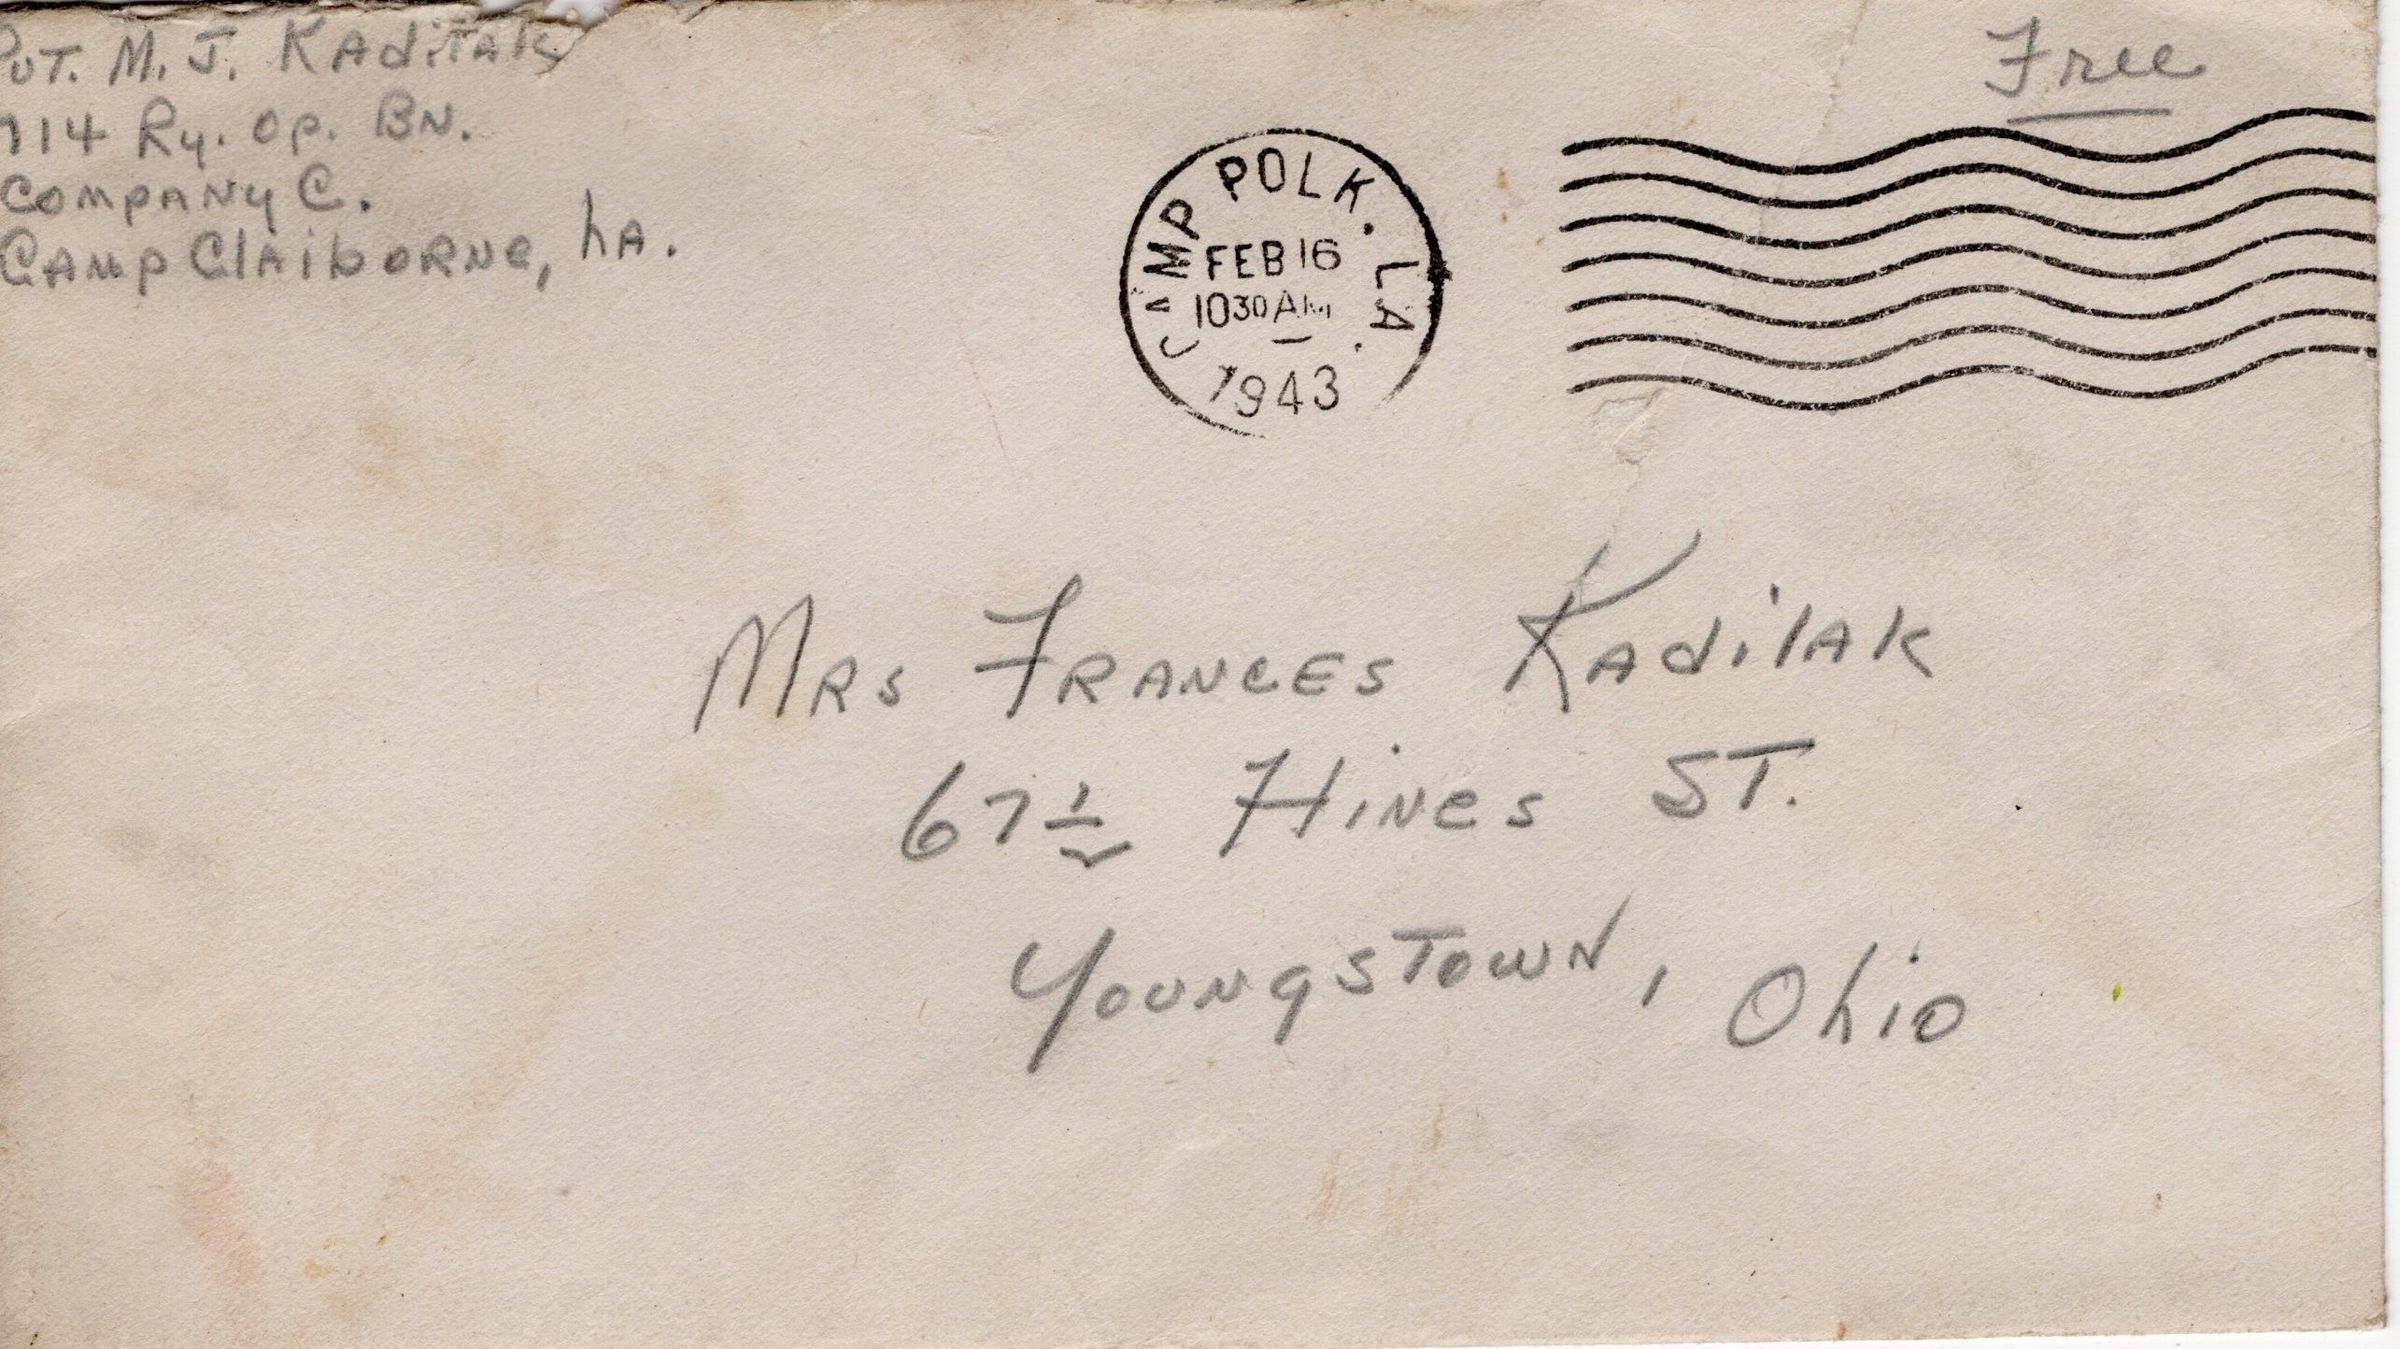 Pvt. M. J. Kadilak
714 Ry. Op. Bn.
Company C.
Camp Claiborne, La.
Free
CAMP POLK. LA.
FEB 16
1030 AM
1943
Mrs Frances Kadilak
67 1/2 Hines St.
Youngstown, Ohio